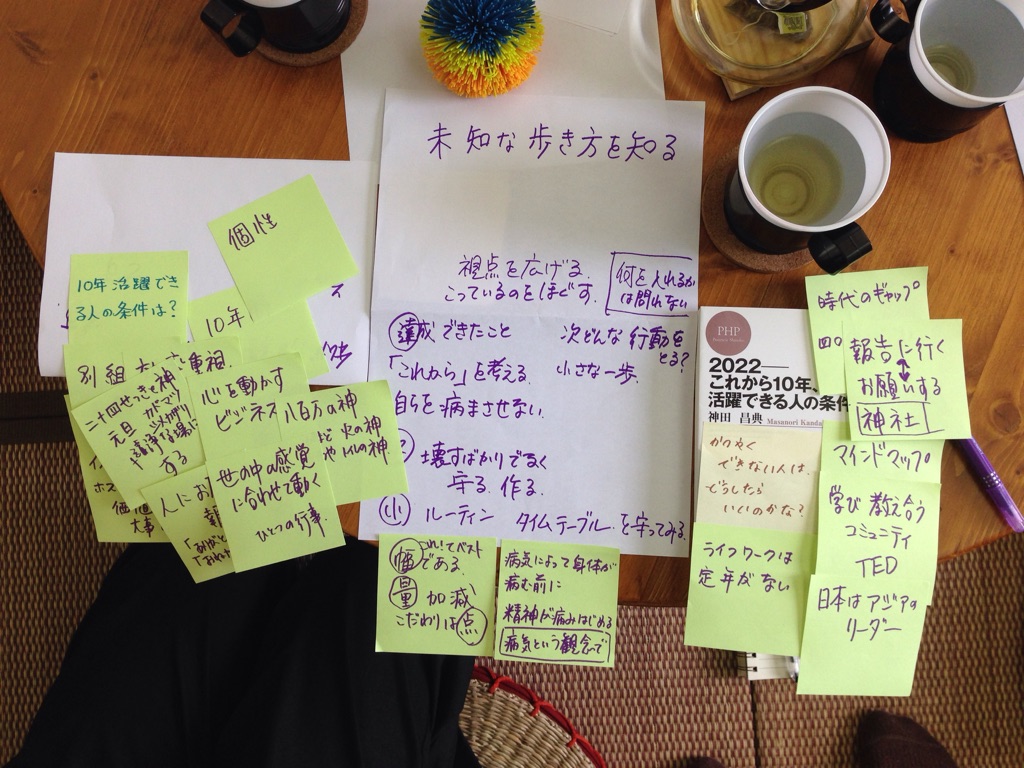 未知な歩き方を知る
視点を広げる。
こっているのをほぐす。
何を入れるか
は問わない
達成できたこと
次どんな行動を
とる?
「これから」を考える。
小さな一歩。
自らを病ませない。
壊すばかりでなく
守る。作る。
小 ルーティン タイムテーブルを守ってみる。
個性
10年活躍でき
る人の条件は?
10年
別組
重視
二十四せっきと神
元旦 カドマツ
シメカザリ
清浄な場に
する
心を動かす
ビジネス
八百万の神
火の神
や山の神
世の中の感覚
に合わせて動く
ひとつの行事。
人にお
大事
幅 これ!でベスト
である。
量 加減
こだわりは点
病気によって身体が
病む前に
精神が痛みはじめる
病気という観念で
PHP
2022―
これから10年、
活躍できる人の条件
神田 昌典 Masanori Kanda
時代のギャップ
報告に行く
お願いする
神社
かつやく
できない人は、
どうしたら
いいのかな?
マインドマップ
学び教え合う
コミュニティ
TED
ライフワークは
定年がない
日本はアジアの
リーダー